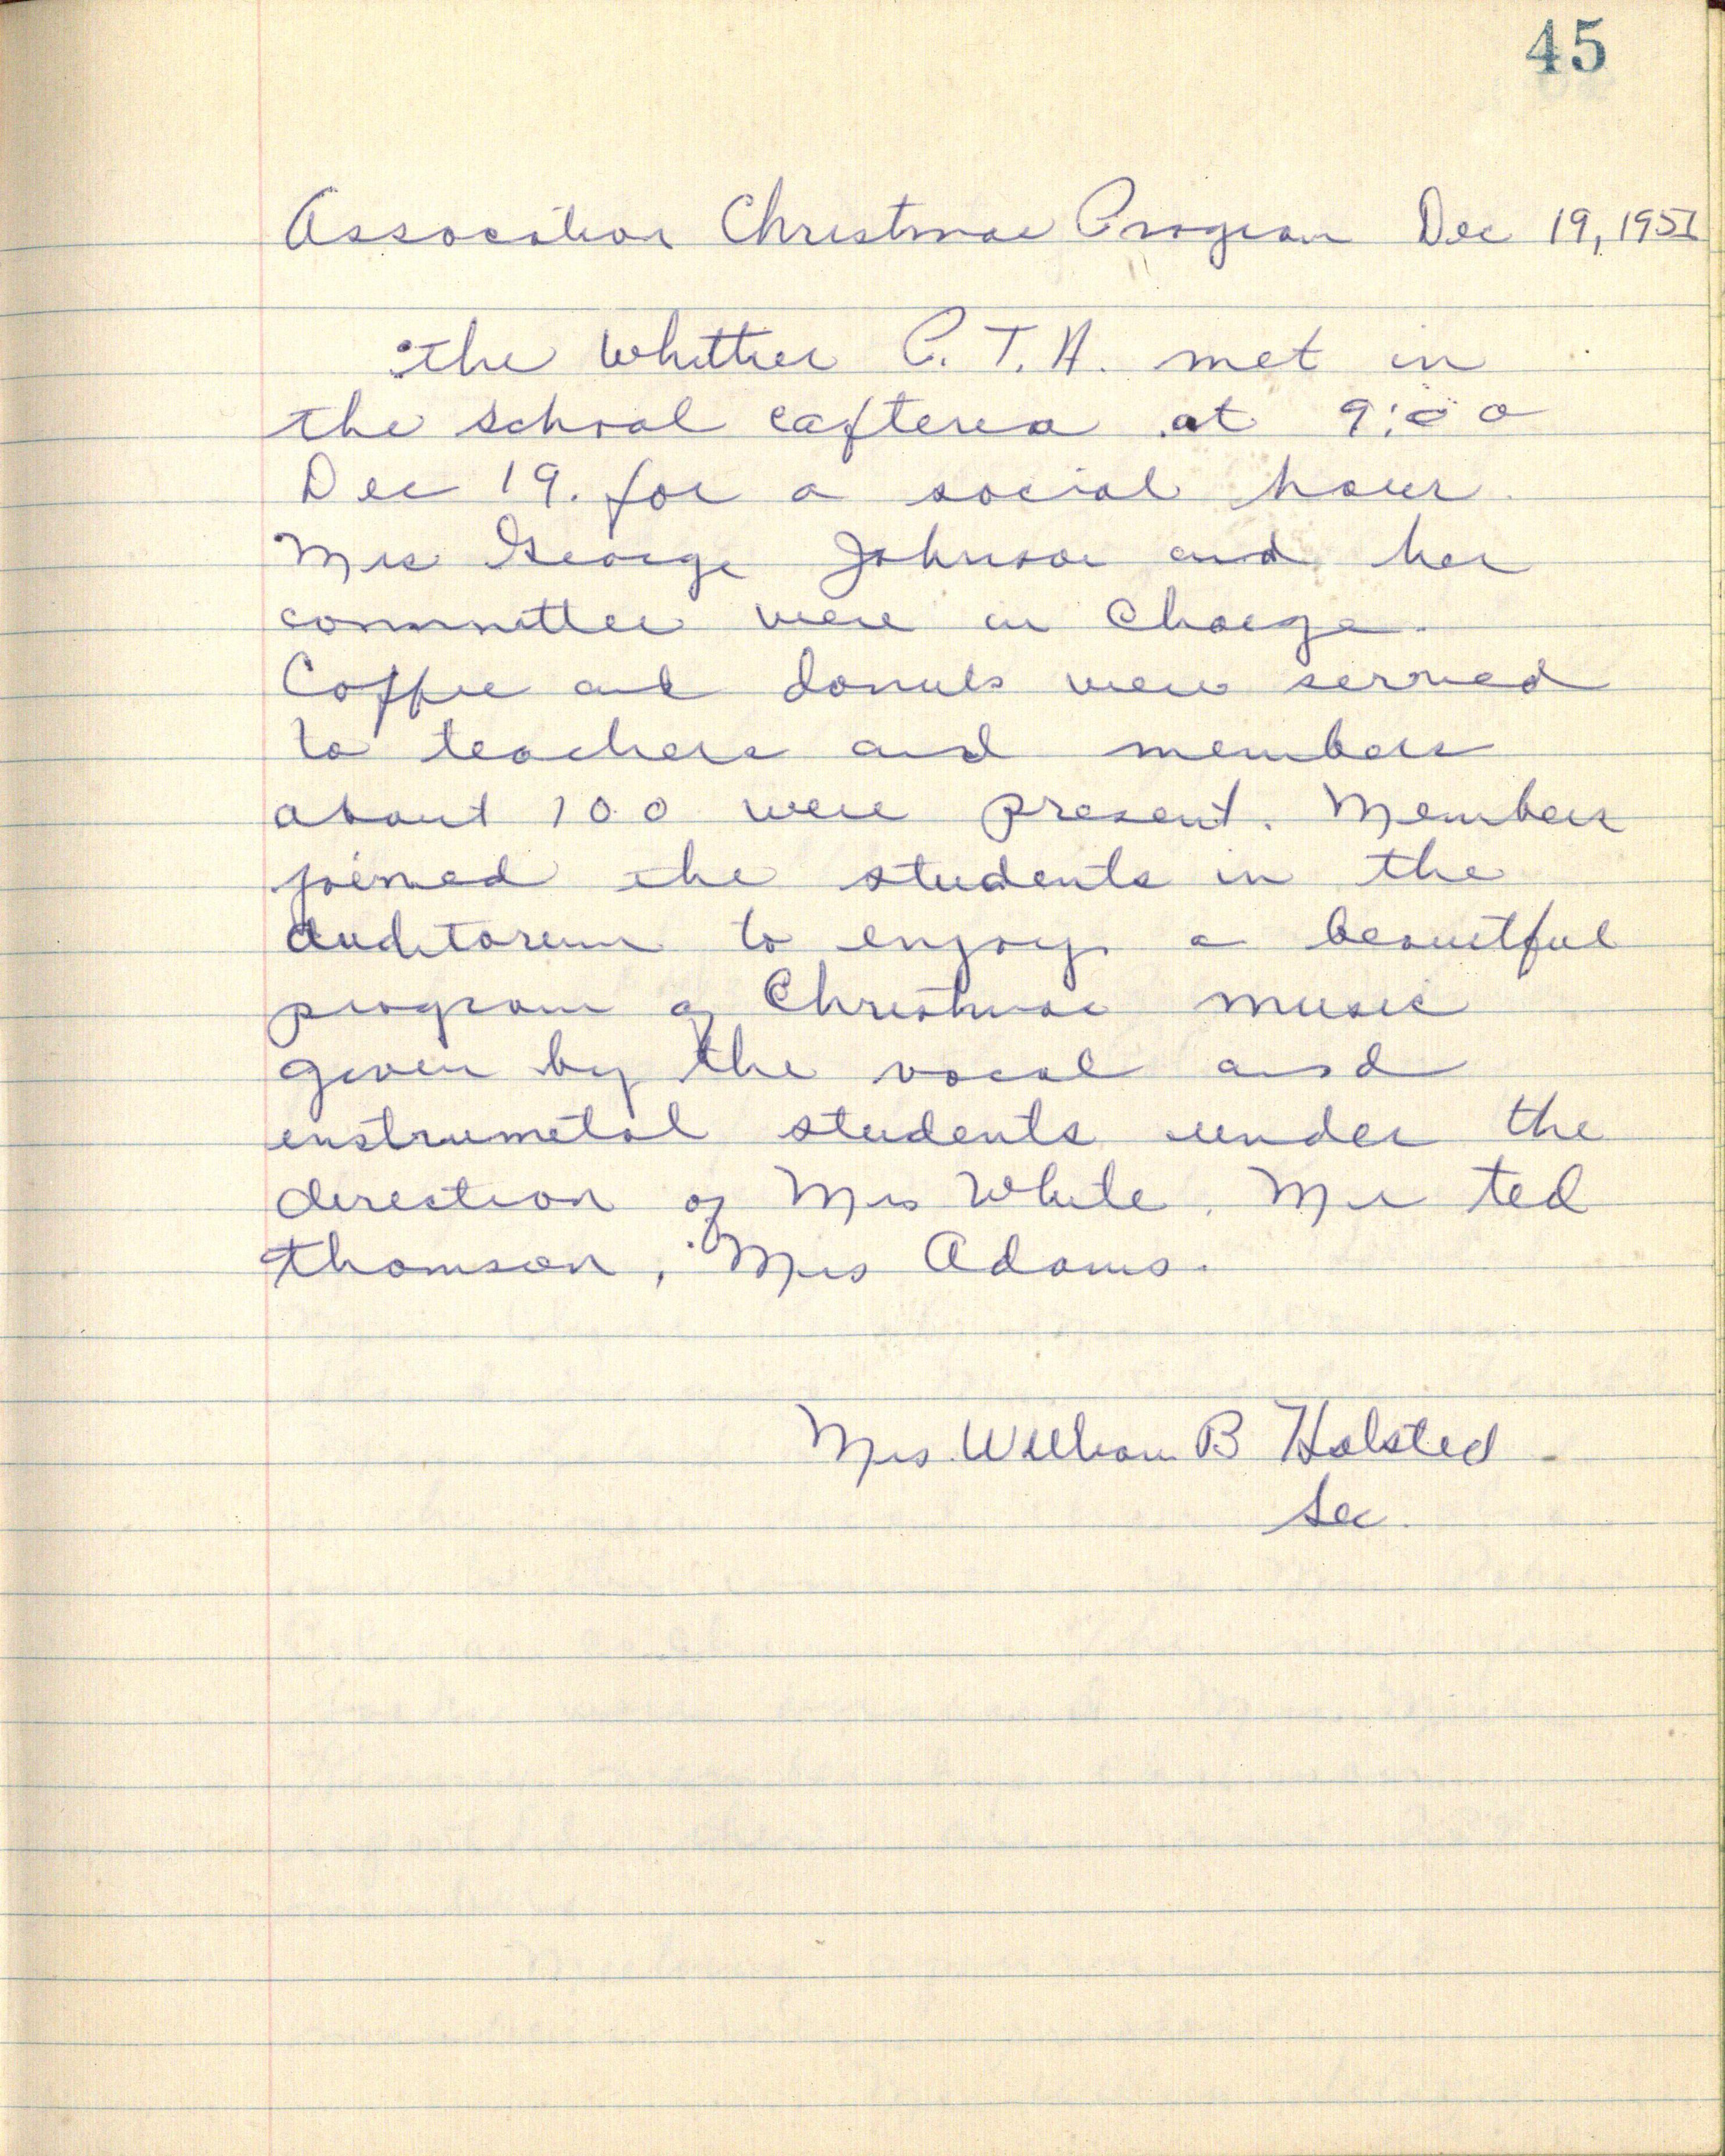 45
Assocation Christmas Program Dec 19, 1951
the Whittier P. T. A. met in
the school cafterea at 9:00
Dec 19. for a social hour.
Mrs George Johnson and her
committee were in charge.
Coffee and donuts were served
to teachers and members
about 100 were present. Members
joined the students in the
auditorium to enjoy a beautful
program of Christmas music
given by the vocal and
instrumetal students under the
direction of Mrs White, Mr Ted
Thomson, Mrs Adams.
Mrs. William B Halsted
Sec.